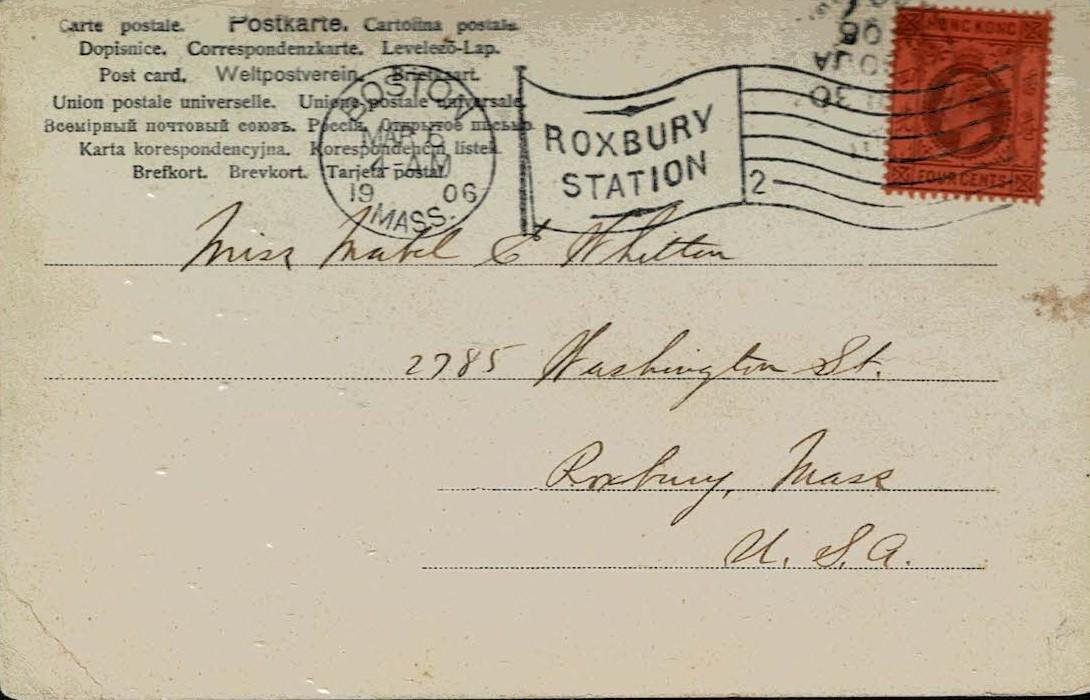 Carte postale. Postkarte. Cartolina postale.
Dopisnice. Correspondenzkarte. Levelező-Lap.
Post card. Weltpostverein. Briefkaart.
Union postale universelle. Unione postale universale.
Всемірный почтовый союзъ. Россія. Открытое письмо.
Karta korespondencyjna. Korespondencni listek.
Brefkort. Brevkort. Tarjeta postal.
BOSTON
MAR 5
4-AM
19 06
MASS.
ROXBURY
STATION
2
HONG KONG
FOUR CENTS
Miss Mabel E Whitton
2785 Washington St.
Roxbury, Mass
U. S. A.